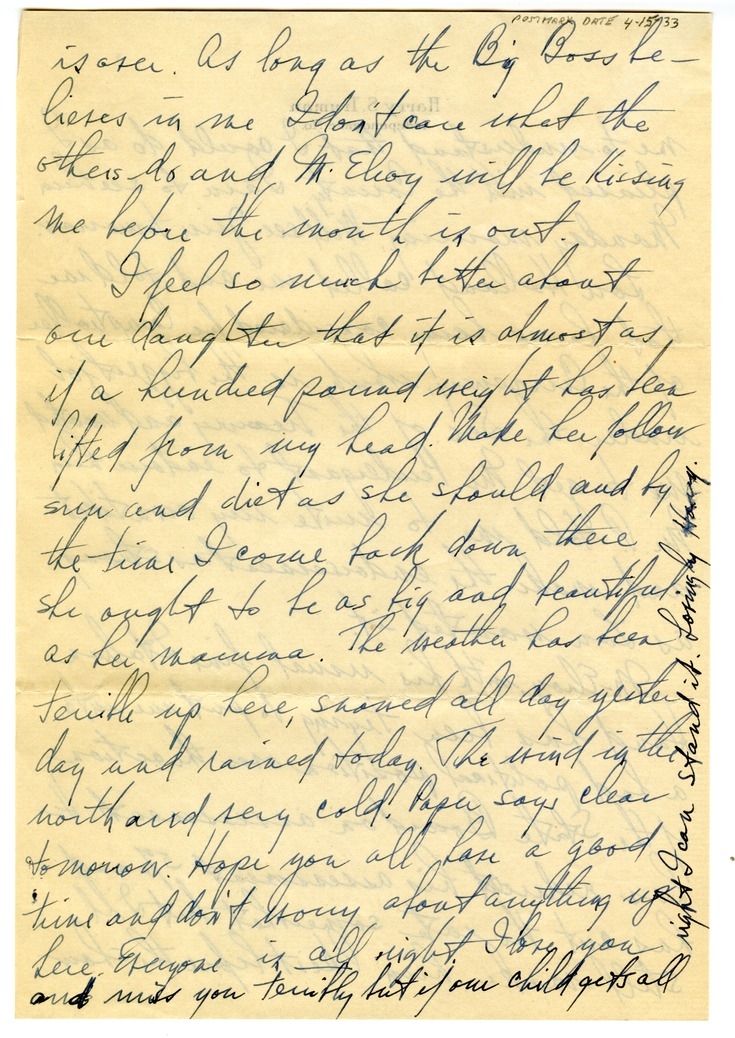 POSTMARK DATE 4-15-33
is over. As long as the Big Boss be-
lieves in me I don't care what the
others do and Mc Elroy will be kissing
me before the month is out.
I feel so much better about
our daughter that it is almost as
if a hundred pound weight has been
lifted from my head. Make her follow
sun and diet as she should and by
the time I come back down there
she ought to be as big and beautiful
as her mamma. The weather has been
terrible up here, snowed all day yester
day and rained today. The wind in the
north and very cold. Paper says clear
tomorrow. Hope you all have a good
time and don't worry about anything up
here. Everyone is all right. I love you
and miss you terribly but if our child gets all
right I can stand it. Lovingly Harry.